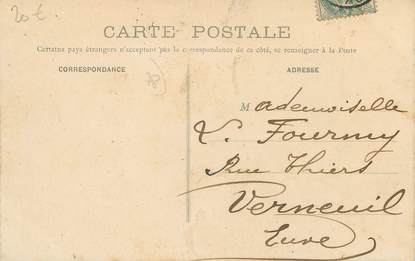 20 €
CARTE POSTALE
Certains pays étrangers n'acceptant pas la correspondance de ce côté, se renseigner à la Poste
CORRESPONDANCE
ADRESSE
Mademoiselle
L. Fourmy
Rue Thiers
Verneuil
Eure